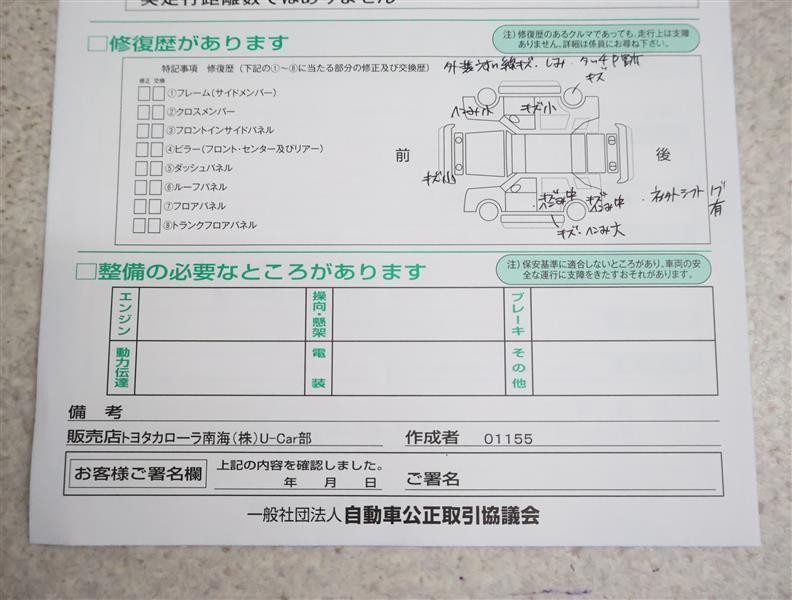 実走行距離数ではありません
□修復歴があります
注）修復歴のあるクルマであっても、走行上は支障
ありません。詳細は係員にお尋ね下さい。
特記事項 修復歴（下記の①〜⑧に当たる部分の修正及び交換歴）
外装うすい線キズ・しみ・タッチP有
修正 交換
①フレーム（サイドメンバー）
②クロスメンバー
③フロントインサイドパネル
④ピラー（フロント・センター及びリアー）
⑤ダッシュパネル
⑥ルーフパネル
⑦フロアパネル
⑧トランクフロアパネル
キズ
ヘこみ小
キズ小
前
後
キズ小
キズ
ヘこみ中
キズ
ヘこみ中
キズ・ヘこみ大
有
□整備の必要なところがあります
注）保安基準に適合しないところがあり、車両の安
全な運行に支障をきたすおそれがあります。
エンジン
操向・懸架
ブレーキ
動力伝達
電装
その他
備考
販売店トヨタカローラ南海（株）U-Car部
作成者 01155
お客様ご署名欄
上記の内容を確認しました。
年 月 日
ご署名
一般社団法人 自動車公正取引協議会